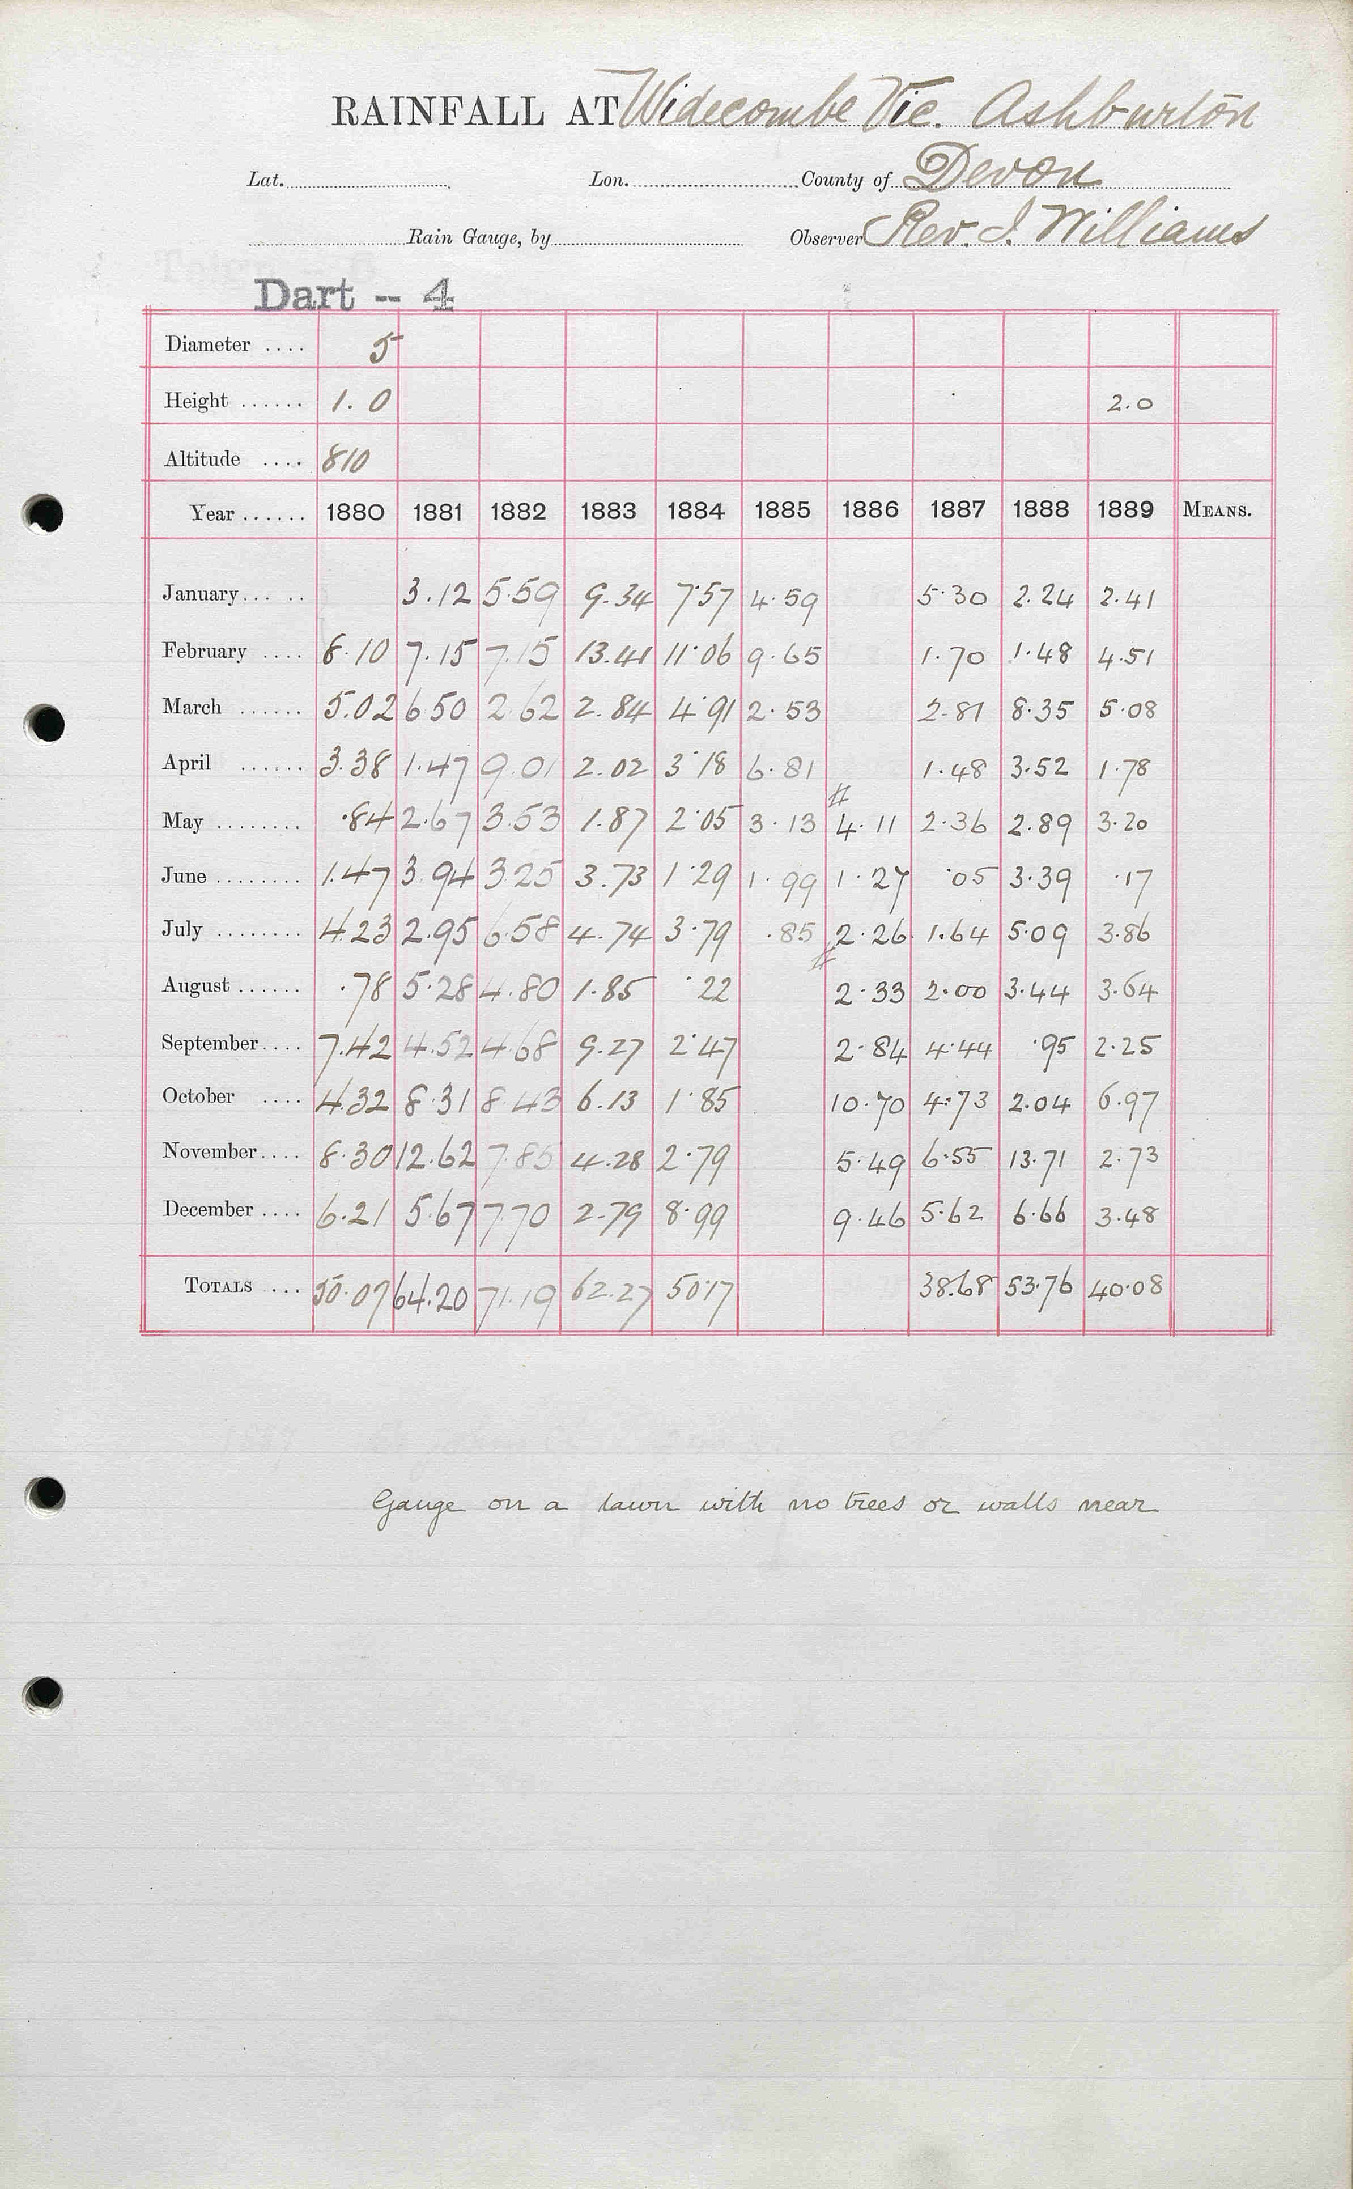 RAINFALL AT Widecombe Vic. Ashburton
Lat. Lon. County of Devon
Rain Gauge, by Observer Rev. J. Williams
Dart -- 4
Diameter .... 5
Height ...... 1.0 2.0
Altitude .... 810
Year ...... 1880 1881 1882 1883 1884 1885 1886 1887 1888 1889 MEANS.
January... .. 3.12 5.59 9.34 7.57 4.59 5.30 2.24 2.41
February .... 8.10 7.15 7.15 13.41 11.06 9.65 1.70 1.48 4.51
March ...... 5.02 6.50 2.62 2.84 4.91 2.53 2.81 8.35 5.08
April ...... 3.38 1.47 9.01 2.02 3.18 6.81 1.48 3.52 1.78
May ........ .84 2.67 3.53 1.87 2.05 3.13 # 4.11 2.36 2.89 3.20
June ........ 1.47 3.94 3.25 3.73 1.29 1.99 1.27 .05 3.39 .17
July ........ 4.23 2.95 6.58 4.74 3.79 .85 # 2.26 1.64 5.09 3.86
August ...... .78 5.28 4.80 1.85 .22 2.33 2.00 3.44 3.64
September.... 7.42 4.52 4.68 9.27 2.47 2.84 4.44 .95 2.25
October .... 4.32 8.31 8.43 6.13 1.85 10.70 4.73 2.04 6.97
November.... 8.30 12.62 7.85 4.28 2.79 5.49 6.55 13.71 2.73
December .... 6.21 5.67 7.70 2.79 8.99 9.46 5.62 6.66 3.48
TOTALS ... 50.07 64.20 71.19 62.27 50.17 38.68 53.76 40.08
Gauge on a lawn with no trees or walls near